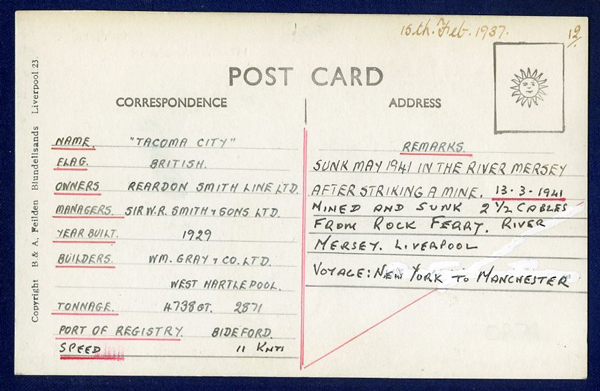 16th. Feb. 1937.
12/.
POST CARD
CORRESPONDENCE
ADDRESS
NAME. "TACOMA CITY"
FLAG. BRITISH.
OWNERS REARDON SMITH LINE LTD.
MANAGERS. SIR W.R. SMITH & SONS LTD.
YEAR BUILT. 1929
BUILDERS. WM. GRAY & CO. LTD.
WEST HARTLEPOOL.
TONNAGE. 4738 GT. 2871
PORT OF REGISTRY. BIDEFORD.
SPEED 11 KNTS
REMARKS.
SUNK MAY 1941 IN THE RIVER MERSEY
AFTER STRIKING A MINE. 13-3-1941
MINED AND SUNK 2 1/2 CABLES
FROM ROCK FERRY. RIVER
MERSEY. LIVERPOOL
VOYAGE: NEW YORK TO MANCHESTER
Copyright B & A. Feilden Blundellsands Liverpool 23